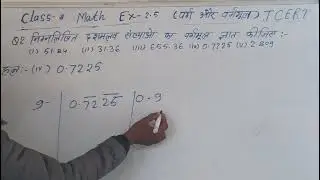 Class:- 8 Math Ex-2.5 (वर्ग और वर्गमूल) JCERT
Q2 निम्नलिखित दशमलव संख्याओं का वर्गमूल ज्ञात कीजिए :-
(i) 51.84 (ii) 31.36 (iii) 655.36 (iv) 0.7225 (v) 2.809
हल:- (iv) 0.7225
9- 0.72 25 0.9